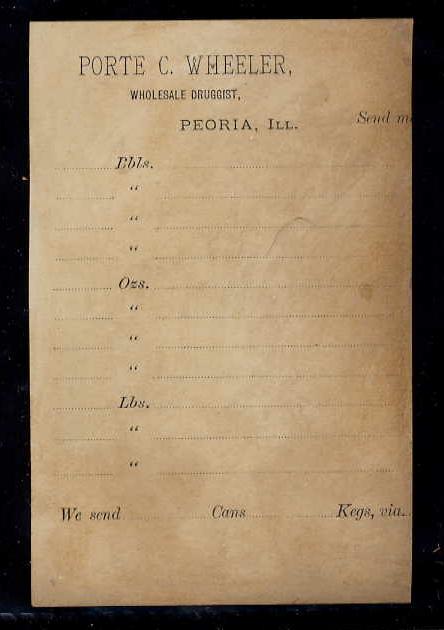 PORTE C. WHEELER,
WHOLESALE DRUGGIST,
PEORIA, ILL.
Send
Bbls.
“
“
“
Ozs.
“
“
“
Lbs.
“
“
We send Cans Kegs, via